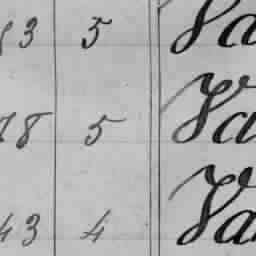 83 5 Va
78 5 Va
43 4 Va